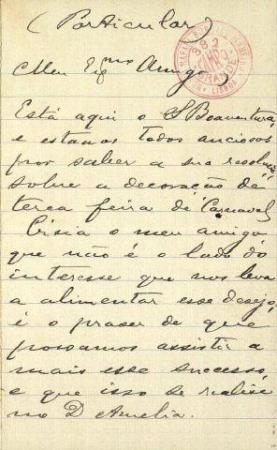 (Particular)
Meu Exmo Amigo
Está aqui o S Boaventura,
e estamos todos anciosos
por saber a sua resolução
sobre a decoração de
terça feira de Carnaval
Creia o meu amigo
que não é o lado do
interesse que nos leva
a alimentar esse desejo,
é o praser de que
possamos assistir a
mais esse successo,
e que isso se realise
no D Amelia.